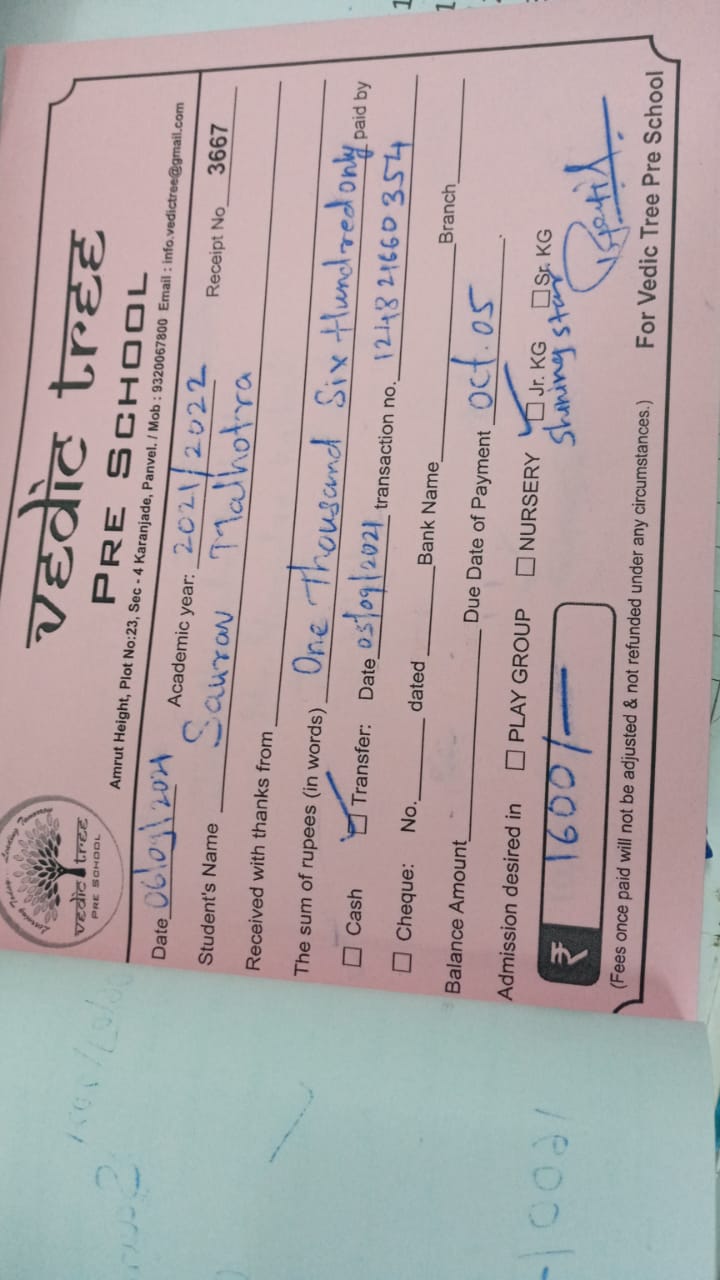 vedic tree
PRE SCHOOL
vedic tree
PRE SCHOOL
Amrut Height, Plot No:23, Sec - 4 Karanjade, Panvel. / Mob : 9320067800 Email : info.vedictree@gmail.com
Date 06/09/2021 Academic year: 2021/2022 Receipt No 3667
Student's Name Saurav Malhotra
Received with thanks from
The sum of rupees (in words) One Thousand Six Hundred only paid by
☐ Cash ☑ Transfer: Date 05/09/2021 transaction no. 124821660354
☐ Cheque: No. dated Bank Name Branch
Balance Amount Due Date of Payment Oct. 05
Admission desired in ☐ PLAY GROUP ☐ NURSERY ☑ Jr. KG ☐ Sr. KG
Shining star
₹ 1600/-
(Fees once paid will not be adjusted & not refunded under any circumstances.) For Vedic Tree Pre School